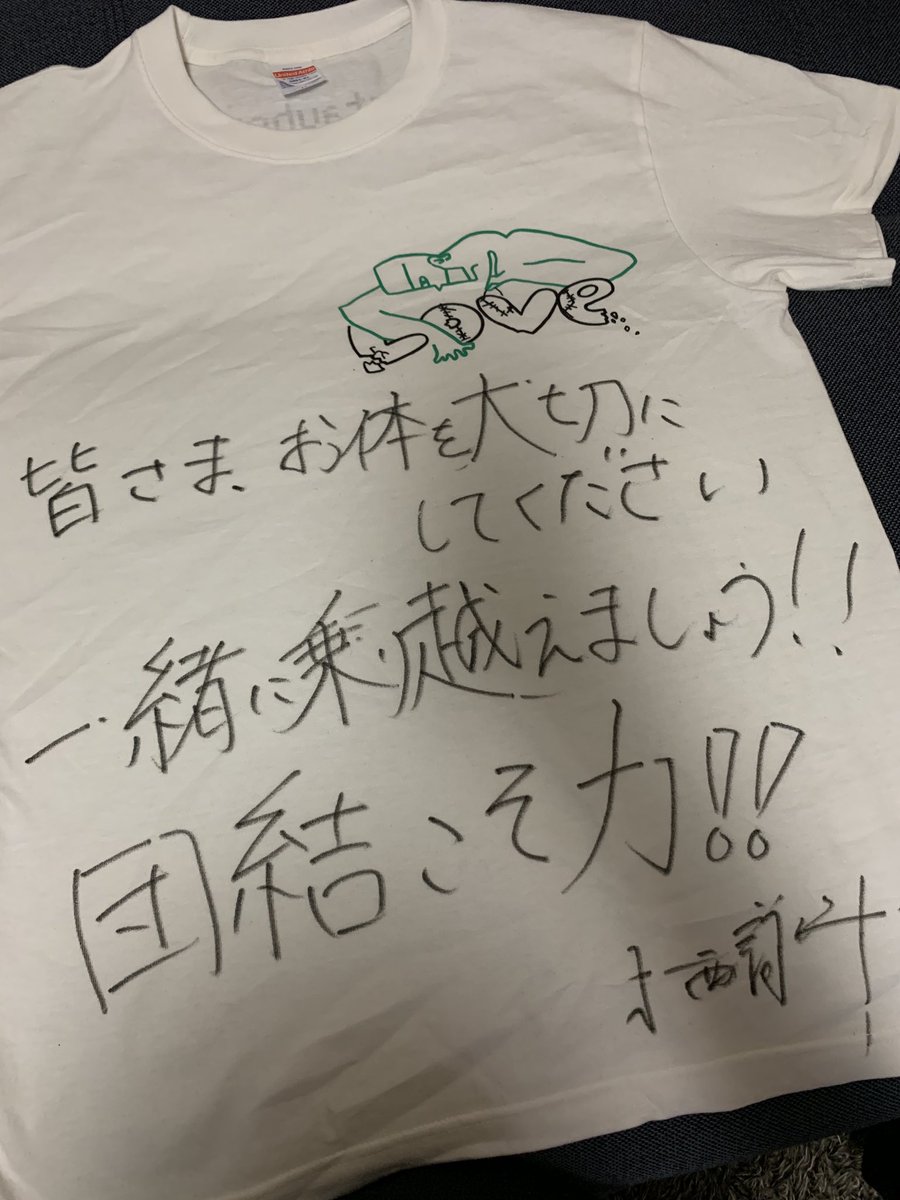 United Athle
Love
皆さま、お体を大切に
してください
一緒に乗り越えましょう!!
団結こそ力!!